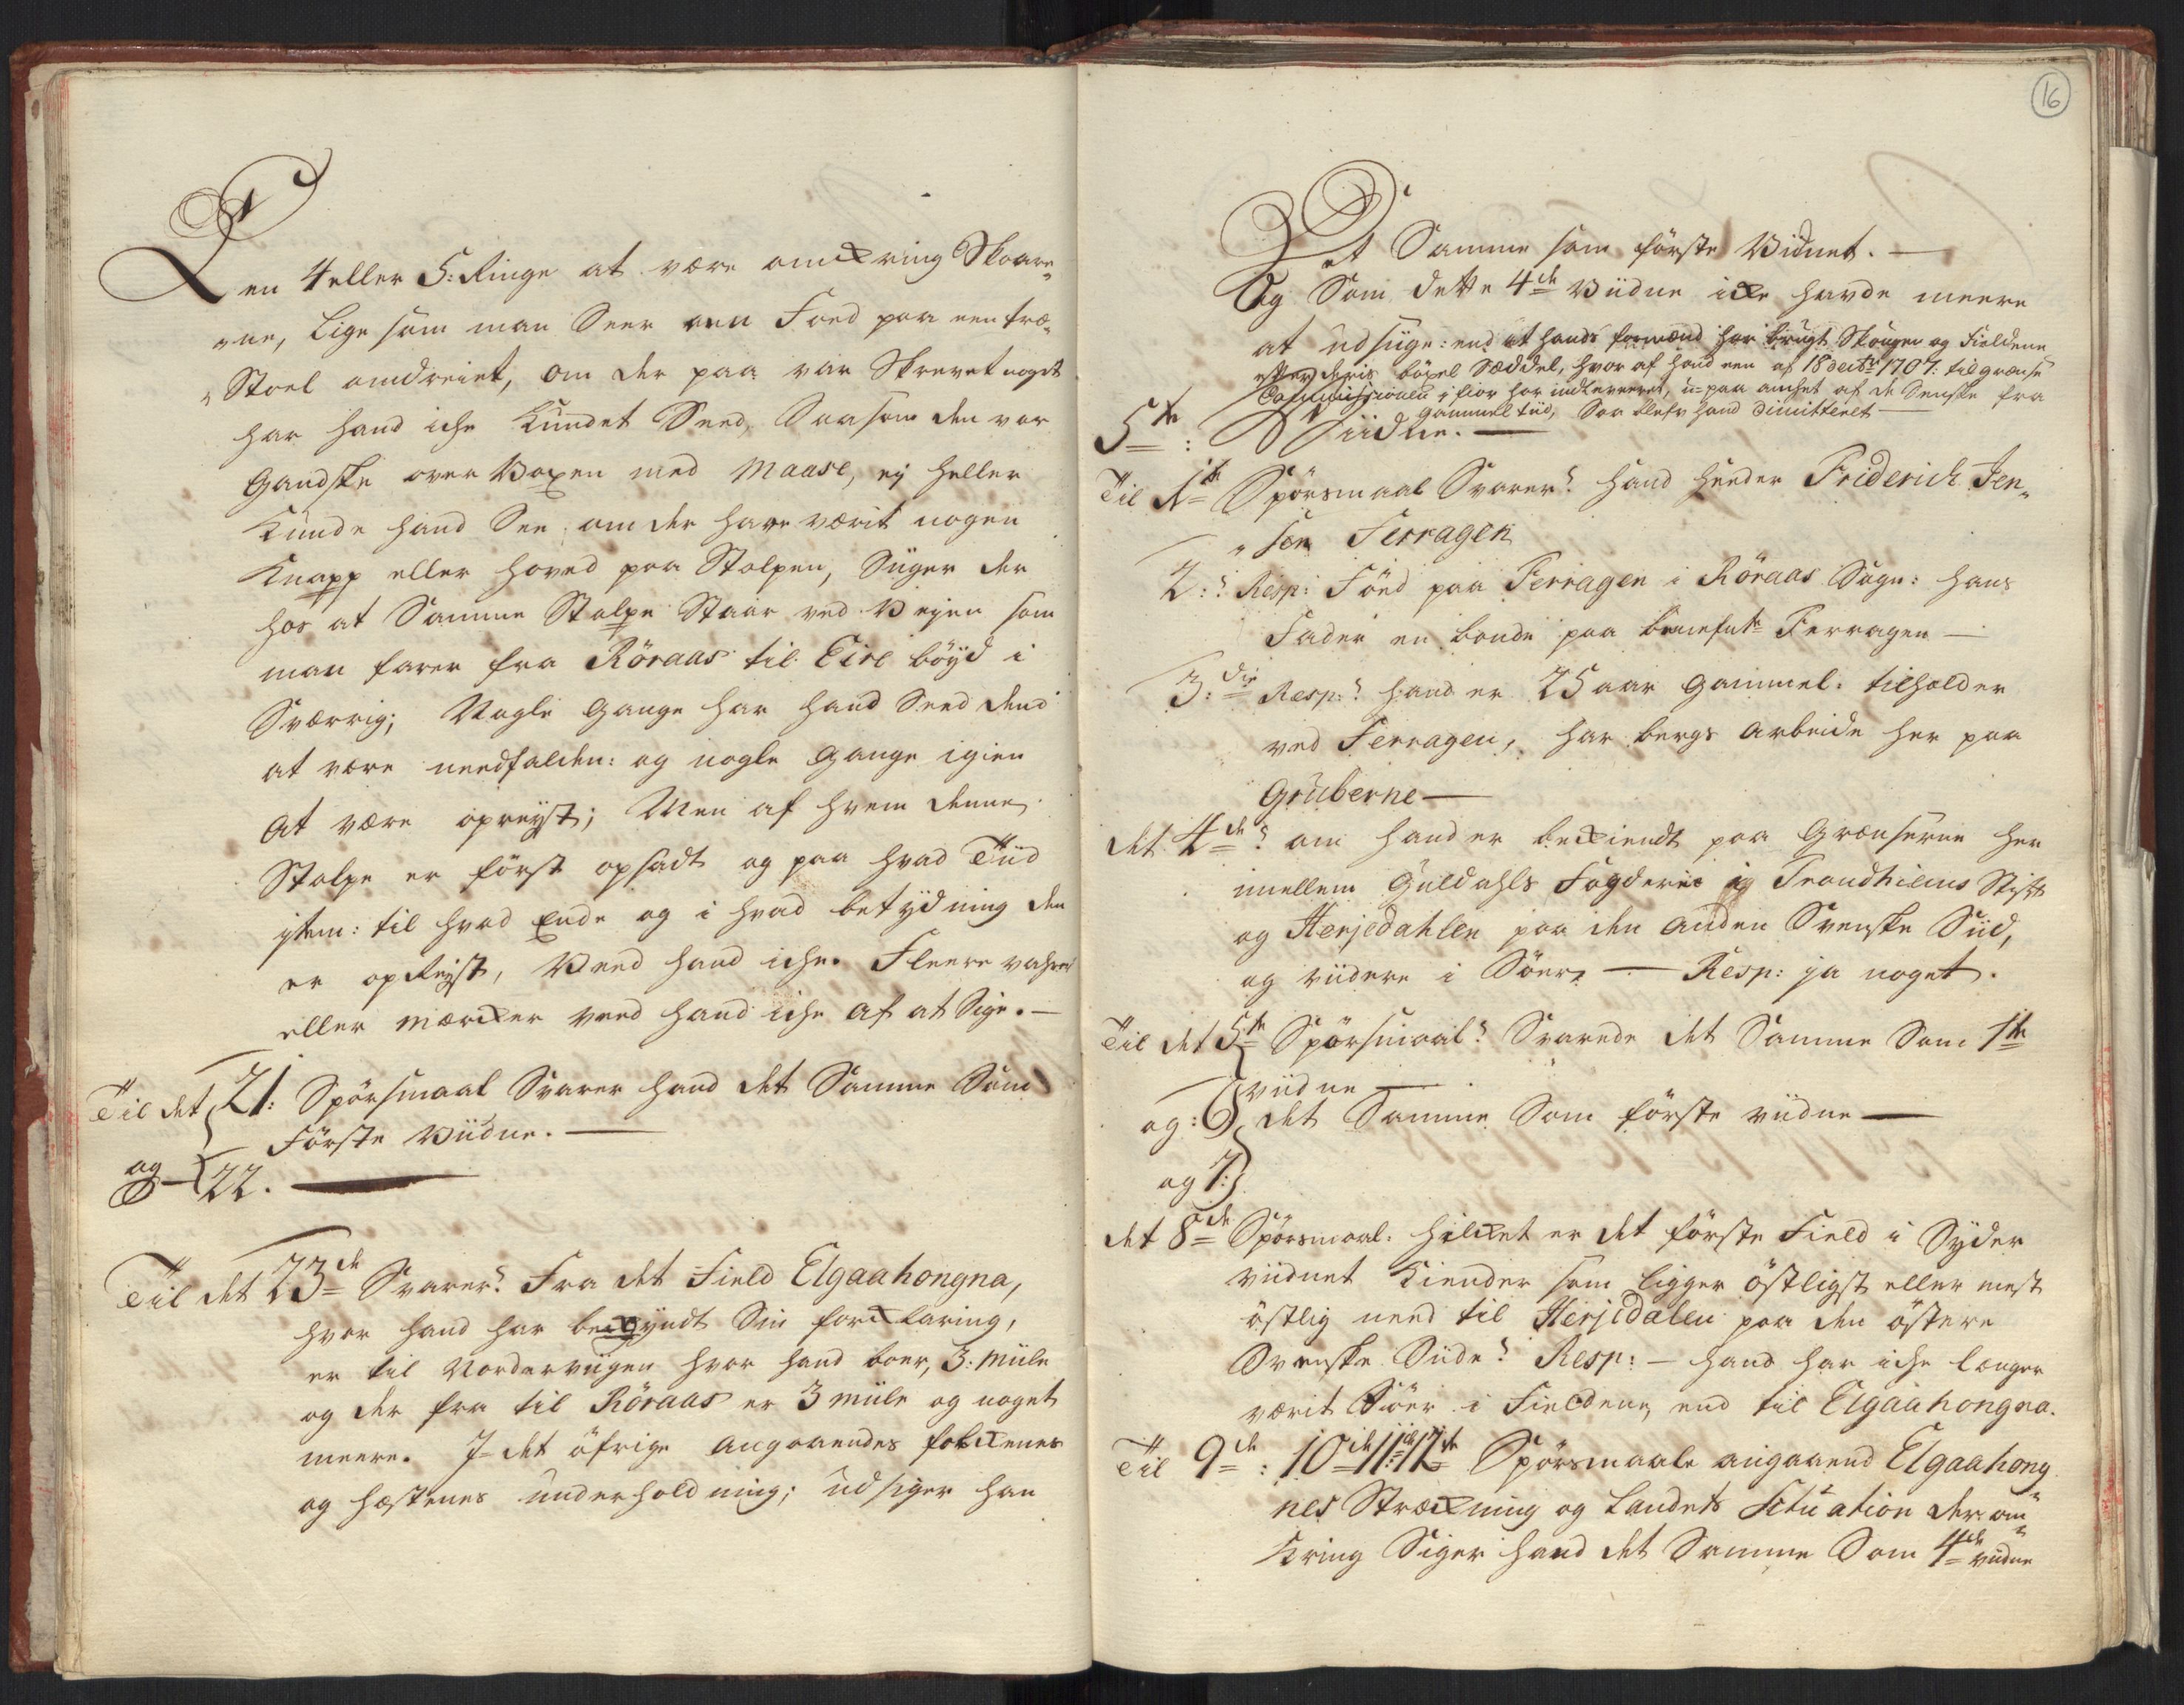 en 4 eller 5: Ringe at være omkring Skoar„
„ne, Lige som man Seer een Foed paa een træ„
„Stoel omdreiet, om der paa var Skrevet noget
har hand iche Kundet Seed, Saasom den var
Gandske over Voxen med Maase, ej heller
Kunde hand See om der have værit nogen
Knapp eller hoved paa Stolpen, Siiger der
hos at Samme Stolpe Staar ved Vejen som
man farer fra Röraas til Eire böyd i
Sværrig; Nogle Gange har hand Seed dend
at være needfalden: og nogle Gange igien
At være opreyst; Men af hvem denne
Stolpe er först opsadt og paa hvad Tiid
item: til hvad Ende og i hvad betydning den
er opReyst, Veed hand iche. Fleere
eller Mærcker veed hand iche af at Sige. —
Til det 21: Spörsmaal Svarer hand det Samme Som
Förste Viidne. —
og — 22. —
Til det 23de Svarer? Fra det Field Elgaahongna,
hvor hand har begyndt Sin forklaring,
er til Nordarviigen hvor hand boer, 3: Miile
og der fra til Röraas er 3 miile og noget
meere. I det öfrige Angaaendes folckenes
og hæstenes underholdning; udsiger han
16
Det Samme som förste Vidnet. —
Og Som dette 4de Viidne icke havde meere
at udsiige: end at hands formænd har brugt Skougen og Fieldene
efter deris böxel Sæddel, hvor af hand een af 18 decbr 1707: til grænse
Commissionen i fior har indleveret, u-paa anchet af de Svenske fra
gammel tiid, Saa blefv hand dimitteret —
5te: Viidne. —
Til 1te Spörsmaal Svarer? hand heeder Friderich Jen„
„sen Ferragen
2:? Resp: Föed paa Ferragen i Röraas Sogn: hans
Fader en bonde paa bemeste Ferragen —
3:die Resp:? hand er 25 aar Gammel: tilholder
ved Ferragen, har bergs Arbeide her paa
Gruberne —
det 4de? om hand er bekiendt paa Grænserne her
imellem Guldahls Fogderie i Trondhiems Stift
og Herjedahlen paa den Anden Svenske Siid,
og viidere i Söer? — Resp: ja noget.
Til det 5te Spörsmaal? Svarede det Samme Som 1te
viidne —
og: 6 det Samme Som förste viidne —
og 7:
det 8de Spörsmaal: hvilcket er det förste Field i Syder
viidnet Kiender som ligger östligst eller mest
östlig need til Herjedalen paa den östere
Svenske Siide? Resp: — hand har iche længer
værit Söer i Fieldene, end til Elgaahongna.
Til 9de: 10de 11te 12te Spörsmaale angaaend Elgaahong„
nes Strækning og Landets Situation der om„
Kring Siger hand det Samme Som 4de viidne